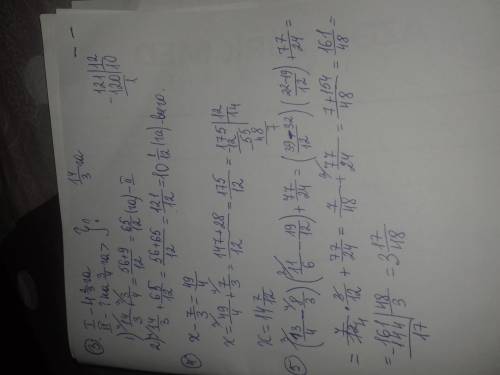 ③ I - 4 2/3 га 14/3 га
II - ? на 3/4 га > } ?
1) 14/3 + 3/4 = 56+9/12 = 65/12 (га) - II
2) 14/3 + 65/12 = 56+65/12 = 121/12 = 10 1/12 (га) - всего.
121 | 12
-120 | 10
1
④ x - 7/3 = 49/4
x = 49/4 + 7/3 = 147+28/12 = 175/12
175 | 12
-12 | 14
55
48
7
x = 14 7/12
⑤ (13/4 - 8/3) (11/6 - 19/12) + 77/24 = (39-32/12) (22-19/12) + 77/24 =
= 7/12 · 3/12 + 77/24 = 7/48 + 77/24 = 7+154/48 = 161/48 =
= 3 17/48
161 | 48
-144 | 3
17